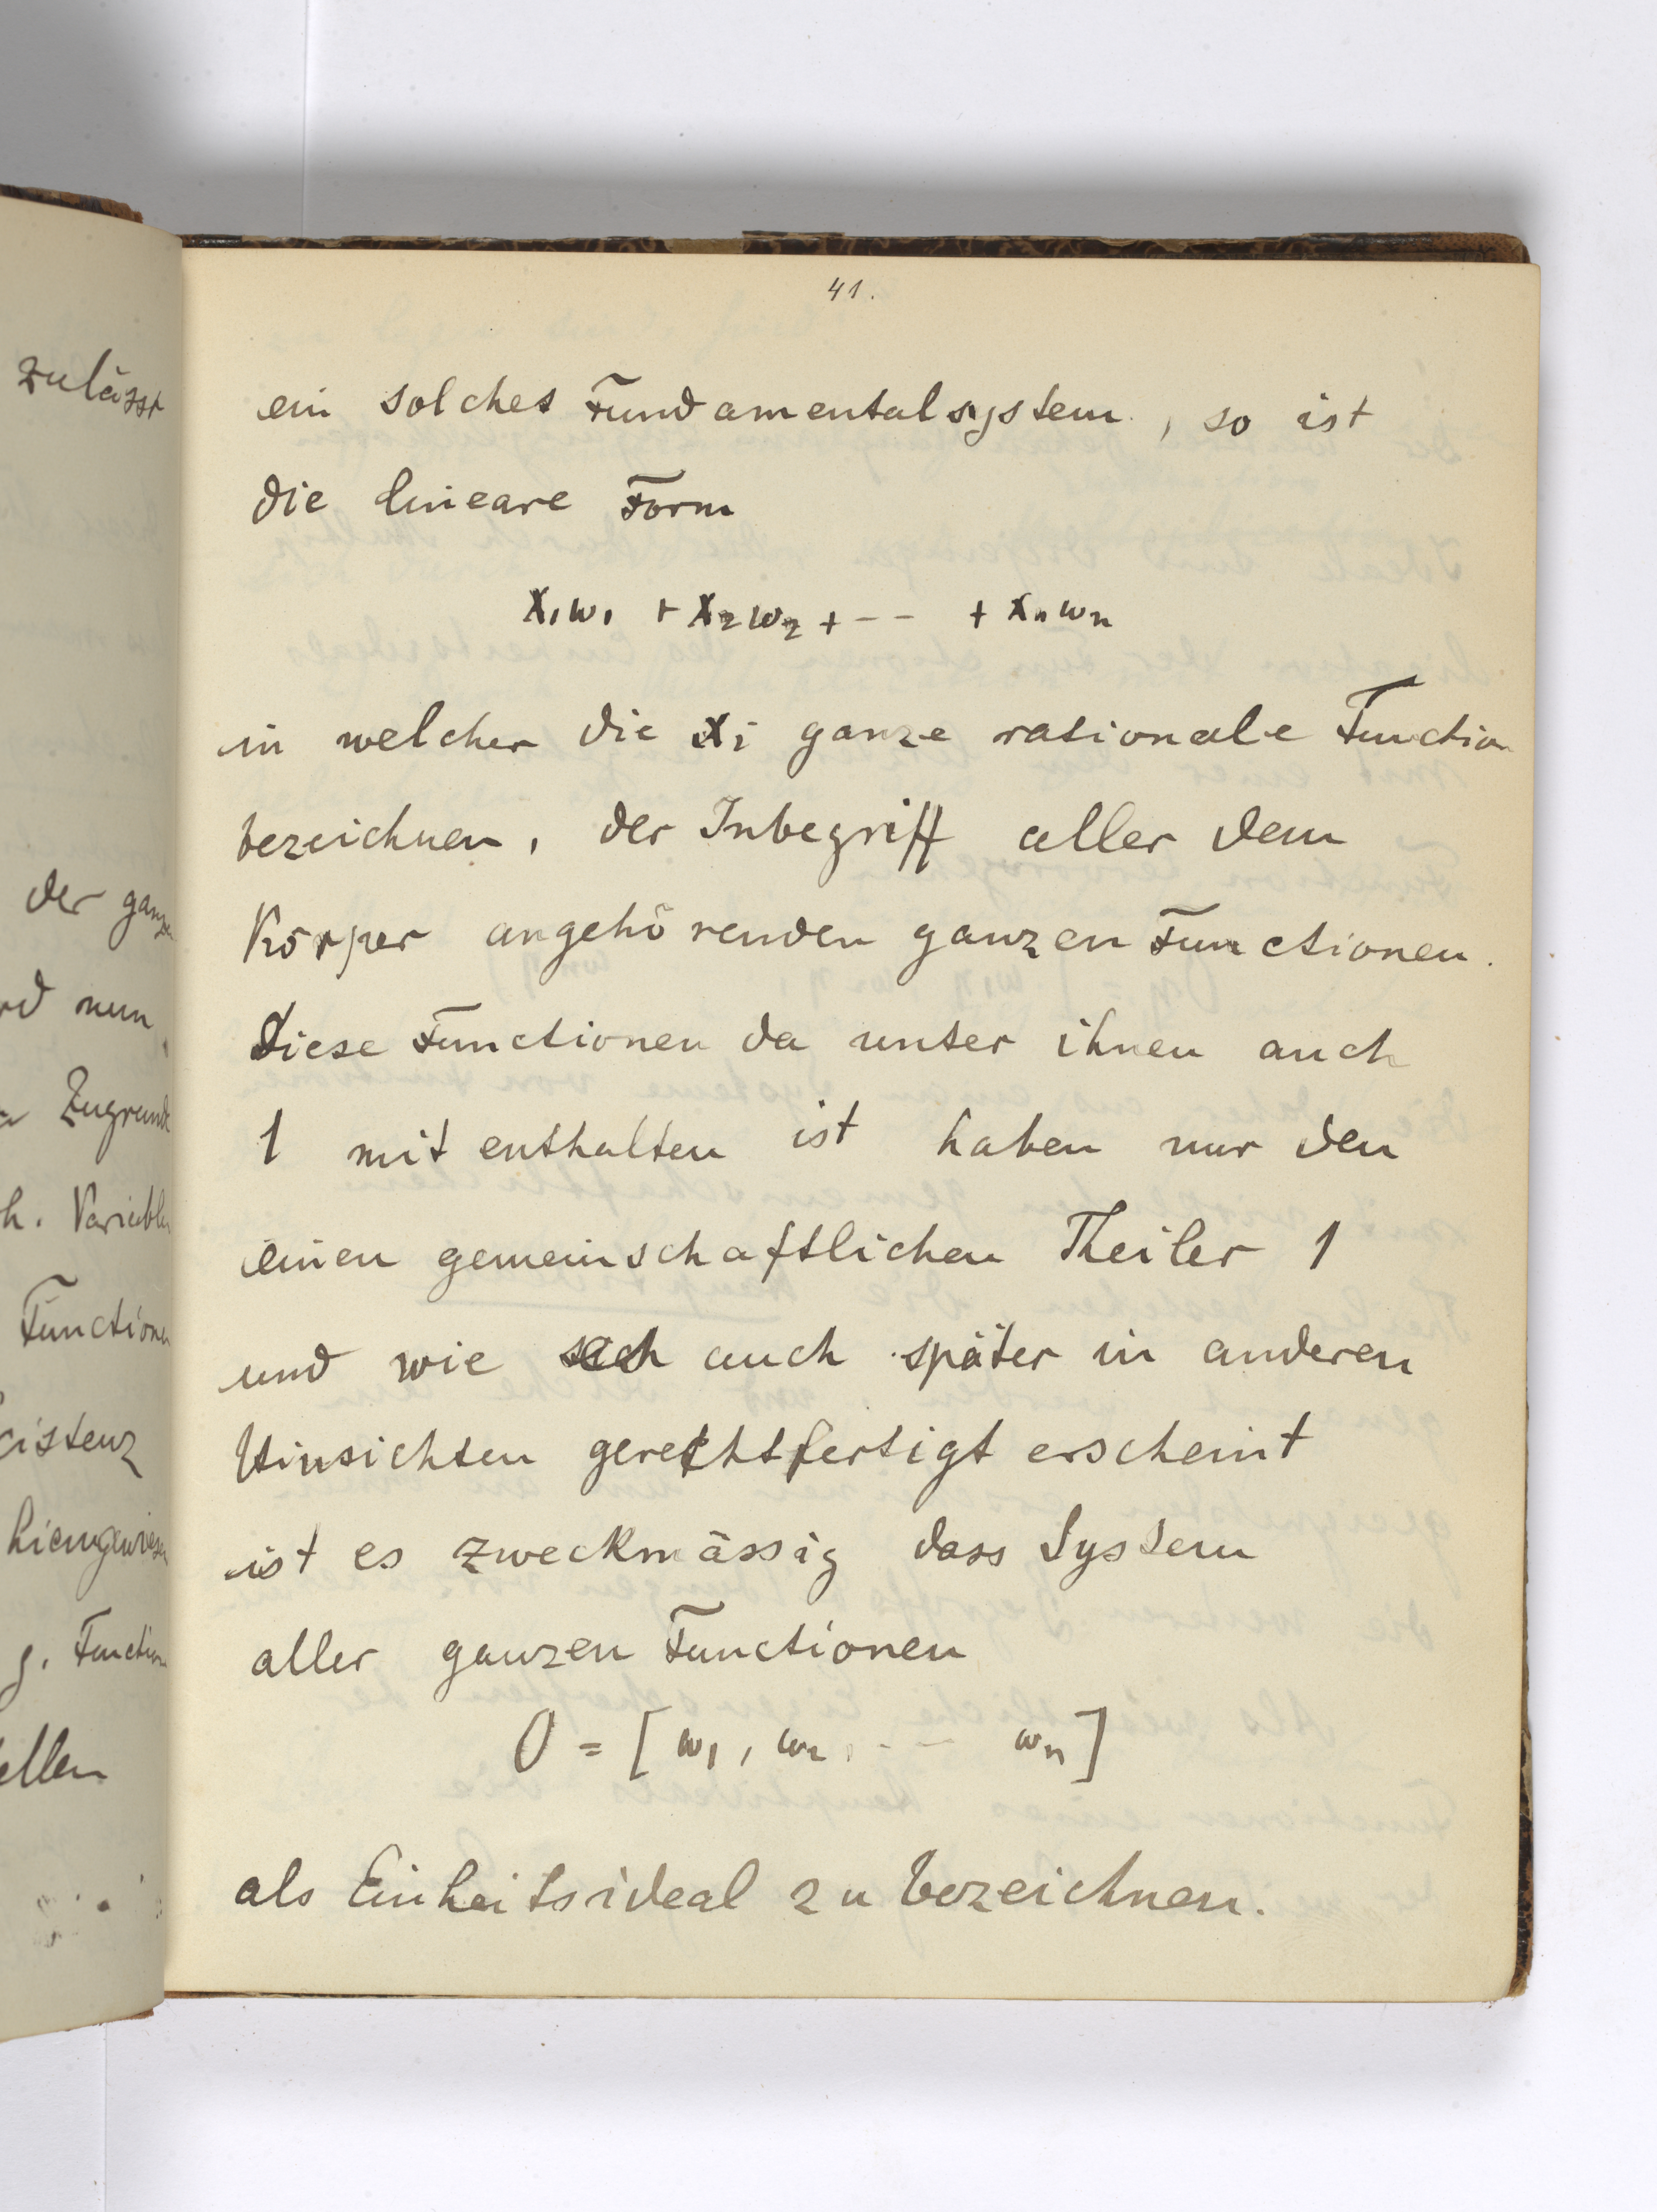 zulässt
der ganzen
nun
Zugrunde
h. Variablen
Functionen
g. Function
41.
ein solches Fundamentalsystem, so ist
die lineare Form
x₁ω₁ + x₂ω₂ + -- + xₙωₙ
in welcher die xi ganze rationale Function
bezeichnen, der Inbegriff aller dem
Körper angehörenden ganzen Functionen.
Diese Functionen da unter ihnen auch
1 mit enthalten ist haben nur den
einen gemeinschaftlichen Theiler 1
und wie auch später in anderen
Hinsichten gerechtfertigt erscheint
ist es zweckmässig dass System
aller ganzen Functionen
O = [ω₁, ω₂, --- ωₙ]
als Einheitsideal zu bezeichnen.